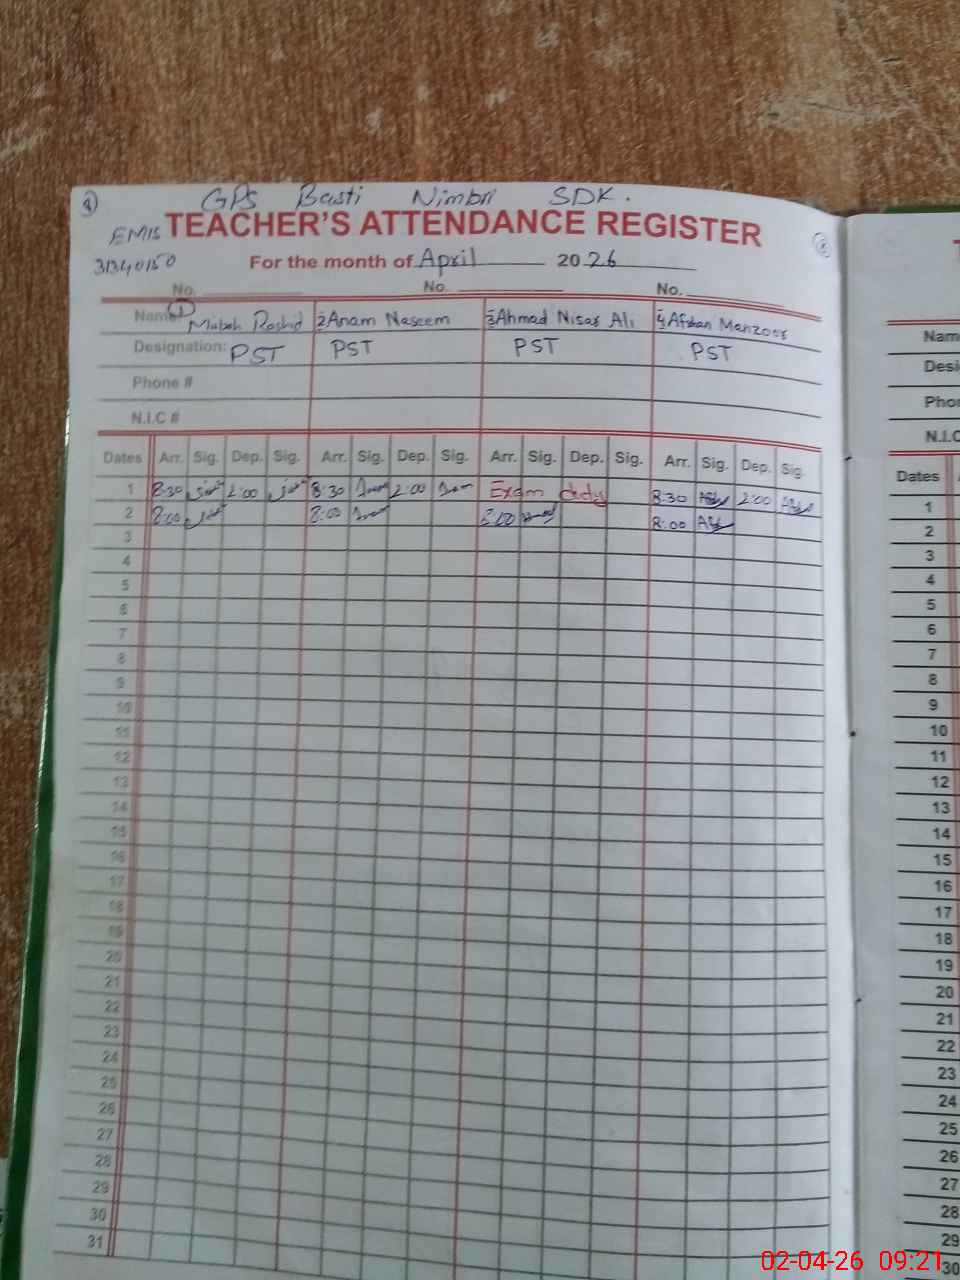 GPS Basti Nimbri SDK.
TEACHER'S ATTENDANCE REGISTER
EMIS
31340150
For the month of April 2026
No. No. No.
Name 1 Rashid 2 Anam Naseem 3 Ahmad Nisar Ali 4 Afshan Manzoor
Designation: PST PST PST PST
Phone #
N.I.C #
Dates Arr. Sig. Dep. Sig. Arr. Sig. Dep. Sig. Arr. Sig. Dep. Sig. Arr. Sig. Dep. Sig.
1 8:30 2:00 8:30 2:00 Exam duty 8:30 2:00
2 8:00 8:00 8:00 8:00
3
4
5
6
7
8
9
10
11
12
13
14
15
16
17
18
19
20
21
22
23
24
25
26
27
28
29
30
31
T
Nam
Desi
Pho
N.I.C
Dates
1
2
3
4
5
6
7
8
9
10
11
12
13
14
15
16
17
18
19
20
21
22
23
24
25
26
27
28
29
30
02-04-26 09:21